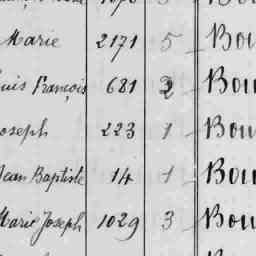 Marie 2171 5 Bou
uis François 681 2 Bou
oseph 223 1 Bou
Jean Baptiste 14 1 Bou
Marie Joseph 1029 3 Bou